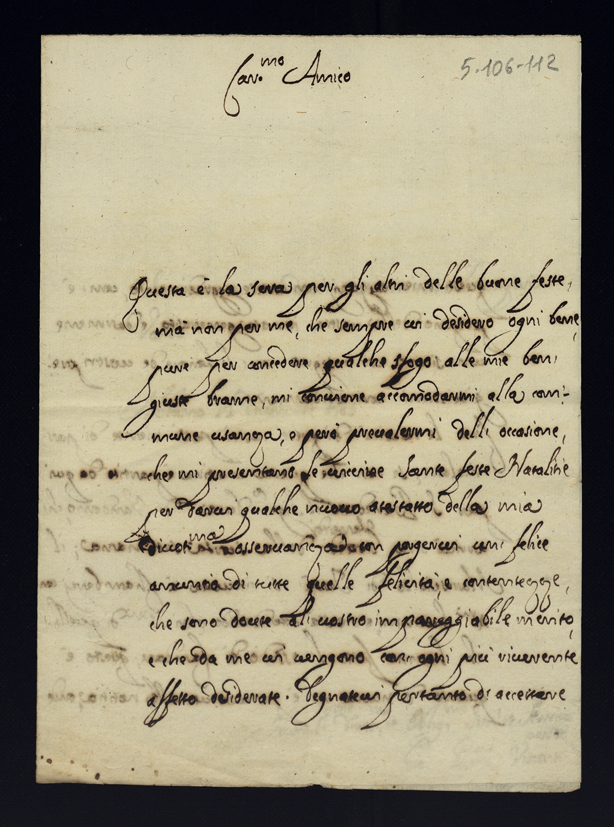 Car.mo Amico
5-106-112
Questa è la sera per gli altri delle buone feste,
mà non per me, che sempre vi desidero ogni bene,
pure per concedere qualche sfogo alle mie ben
giuste brame, mi conviene accomodarmi alla com-
mune usanza, e però prevalermi dell' occasione,
che mi presentano le vicine Sante feste Natalitie
per darvi qualche nuovo atestatto della mia
divoti.ma osservanza con porgervi un felice
annuntio di tutte quelle felicità, e contentezze,
che sono dovute al vostro impareggiabile merito,
e che da me vi vengono con ogni più riverente
affetto desiderate. Degnatevi pertanto di accettare